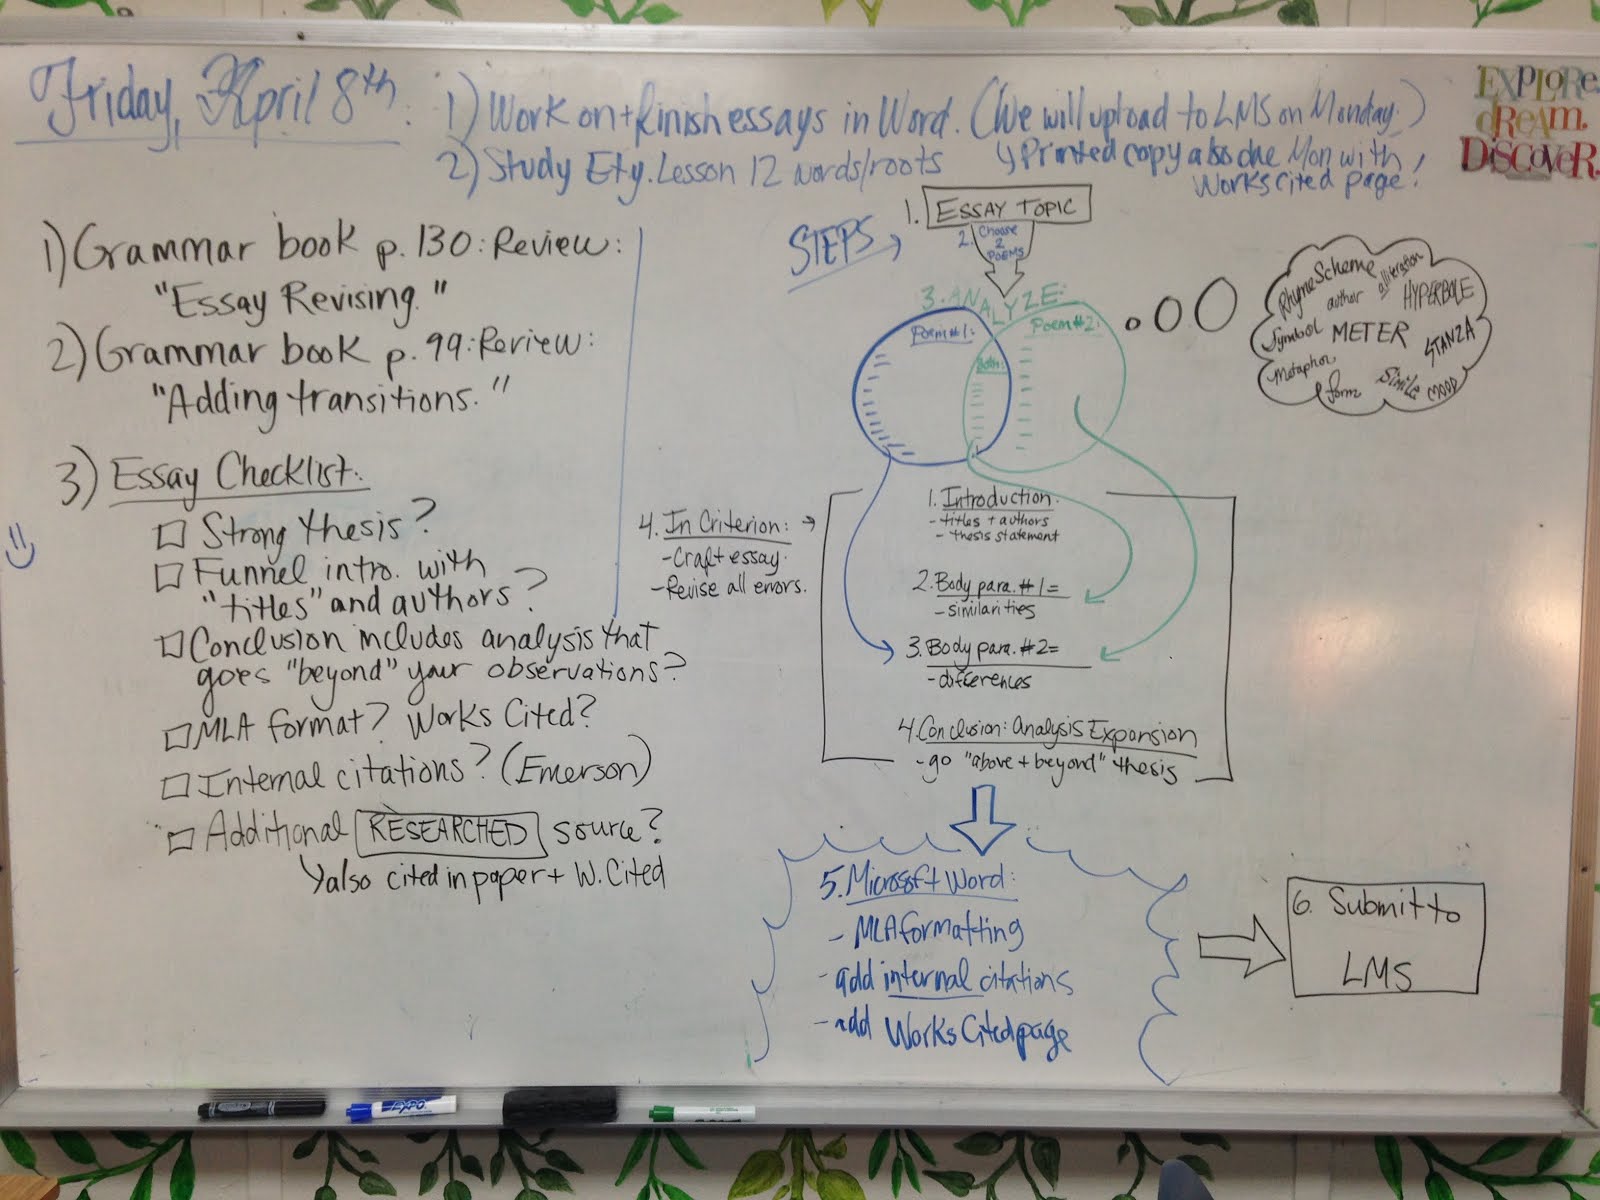 Friday, April 8th.
1) Work on + finish essays in Word. (We will upload to LMS on Monday.)
↳ Printed copy also due Mon with
Works cited page!
2) Study Ety. Lesson 12 words/roots
EXPLORE.
dREAM.
DiSCOVER.
1) Grammar book p. 130: Review:
"Essay Revising."
2) Grammar book p. 99: Review:
"Adding transitions."
3) Essay Checklist:
□ Strong thesis?
□ Funnel intro. with
"titles" and authors?
□ Conclusion includes analysis that
goes "beyond" your observations?
□ MLA format? Works Cited?
□ Internal citations? (Emerson)
□ Additional RESEARCHED source?
↳ also cited in paper + W. Cited
STEPS →
1. ESSAY TOPIC
2. Choose
2
POEMS
3. ANALYZE:
Poem #1:
Both:
Poem #2:
Rhyme Scheme
author
alliteration
HYPERBOLE
Symbol
METER
STANZA
Metaphor
form
Simile
MOOD
4. In Criterion: →
- Craft essay.
- Revise all errors.
1. Introduction.
- titles + authors
- thesis statement
2. Body para. #1 =
- similarities
3. Body para. #2 =
- differences
4. Conclusion: Analysis Expansion
- go "above + beyond" thesis
5. Microsoft Word:
- MLA formatting
- add internal citations
- add Works Cited page
6. Submit to
LMS
EXPO